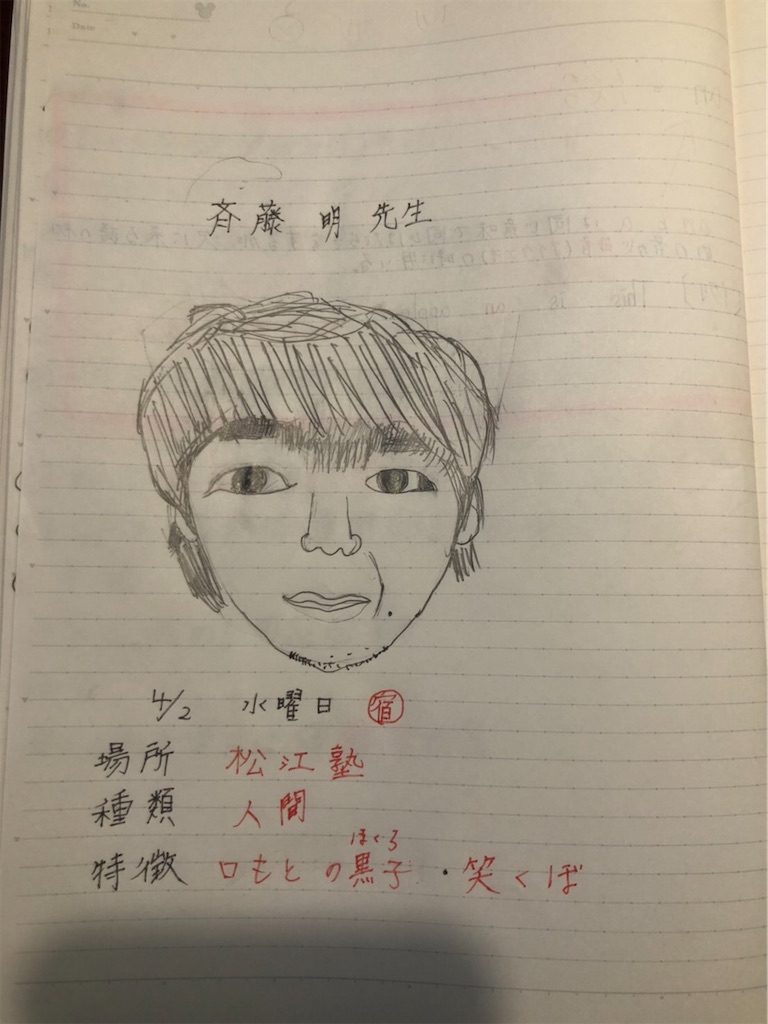 No.
Date
斉藤 明 先生
4/2 水曜日 宿
場所 松江塾
種類 人間
ほくろ
特徴 口もとの黒子・笑くぼ